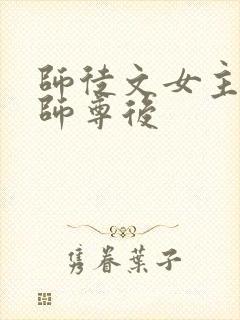 師徒文女主
師尊後
隽眷葉子